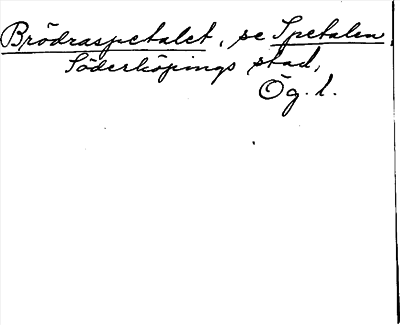 Brödraspetalet, se Spetalen,
Söderköpings stad,
Ög. l.